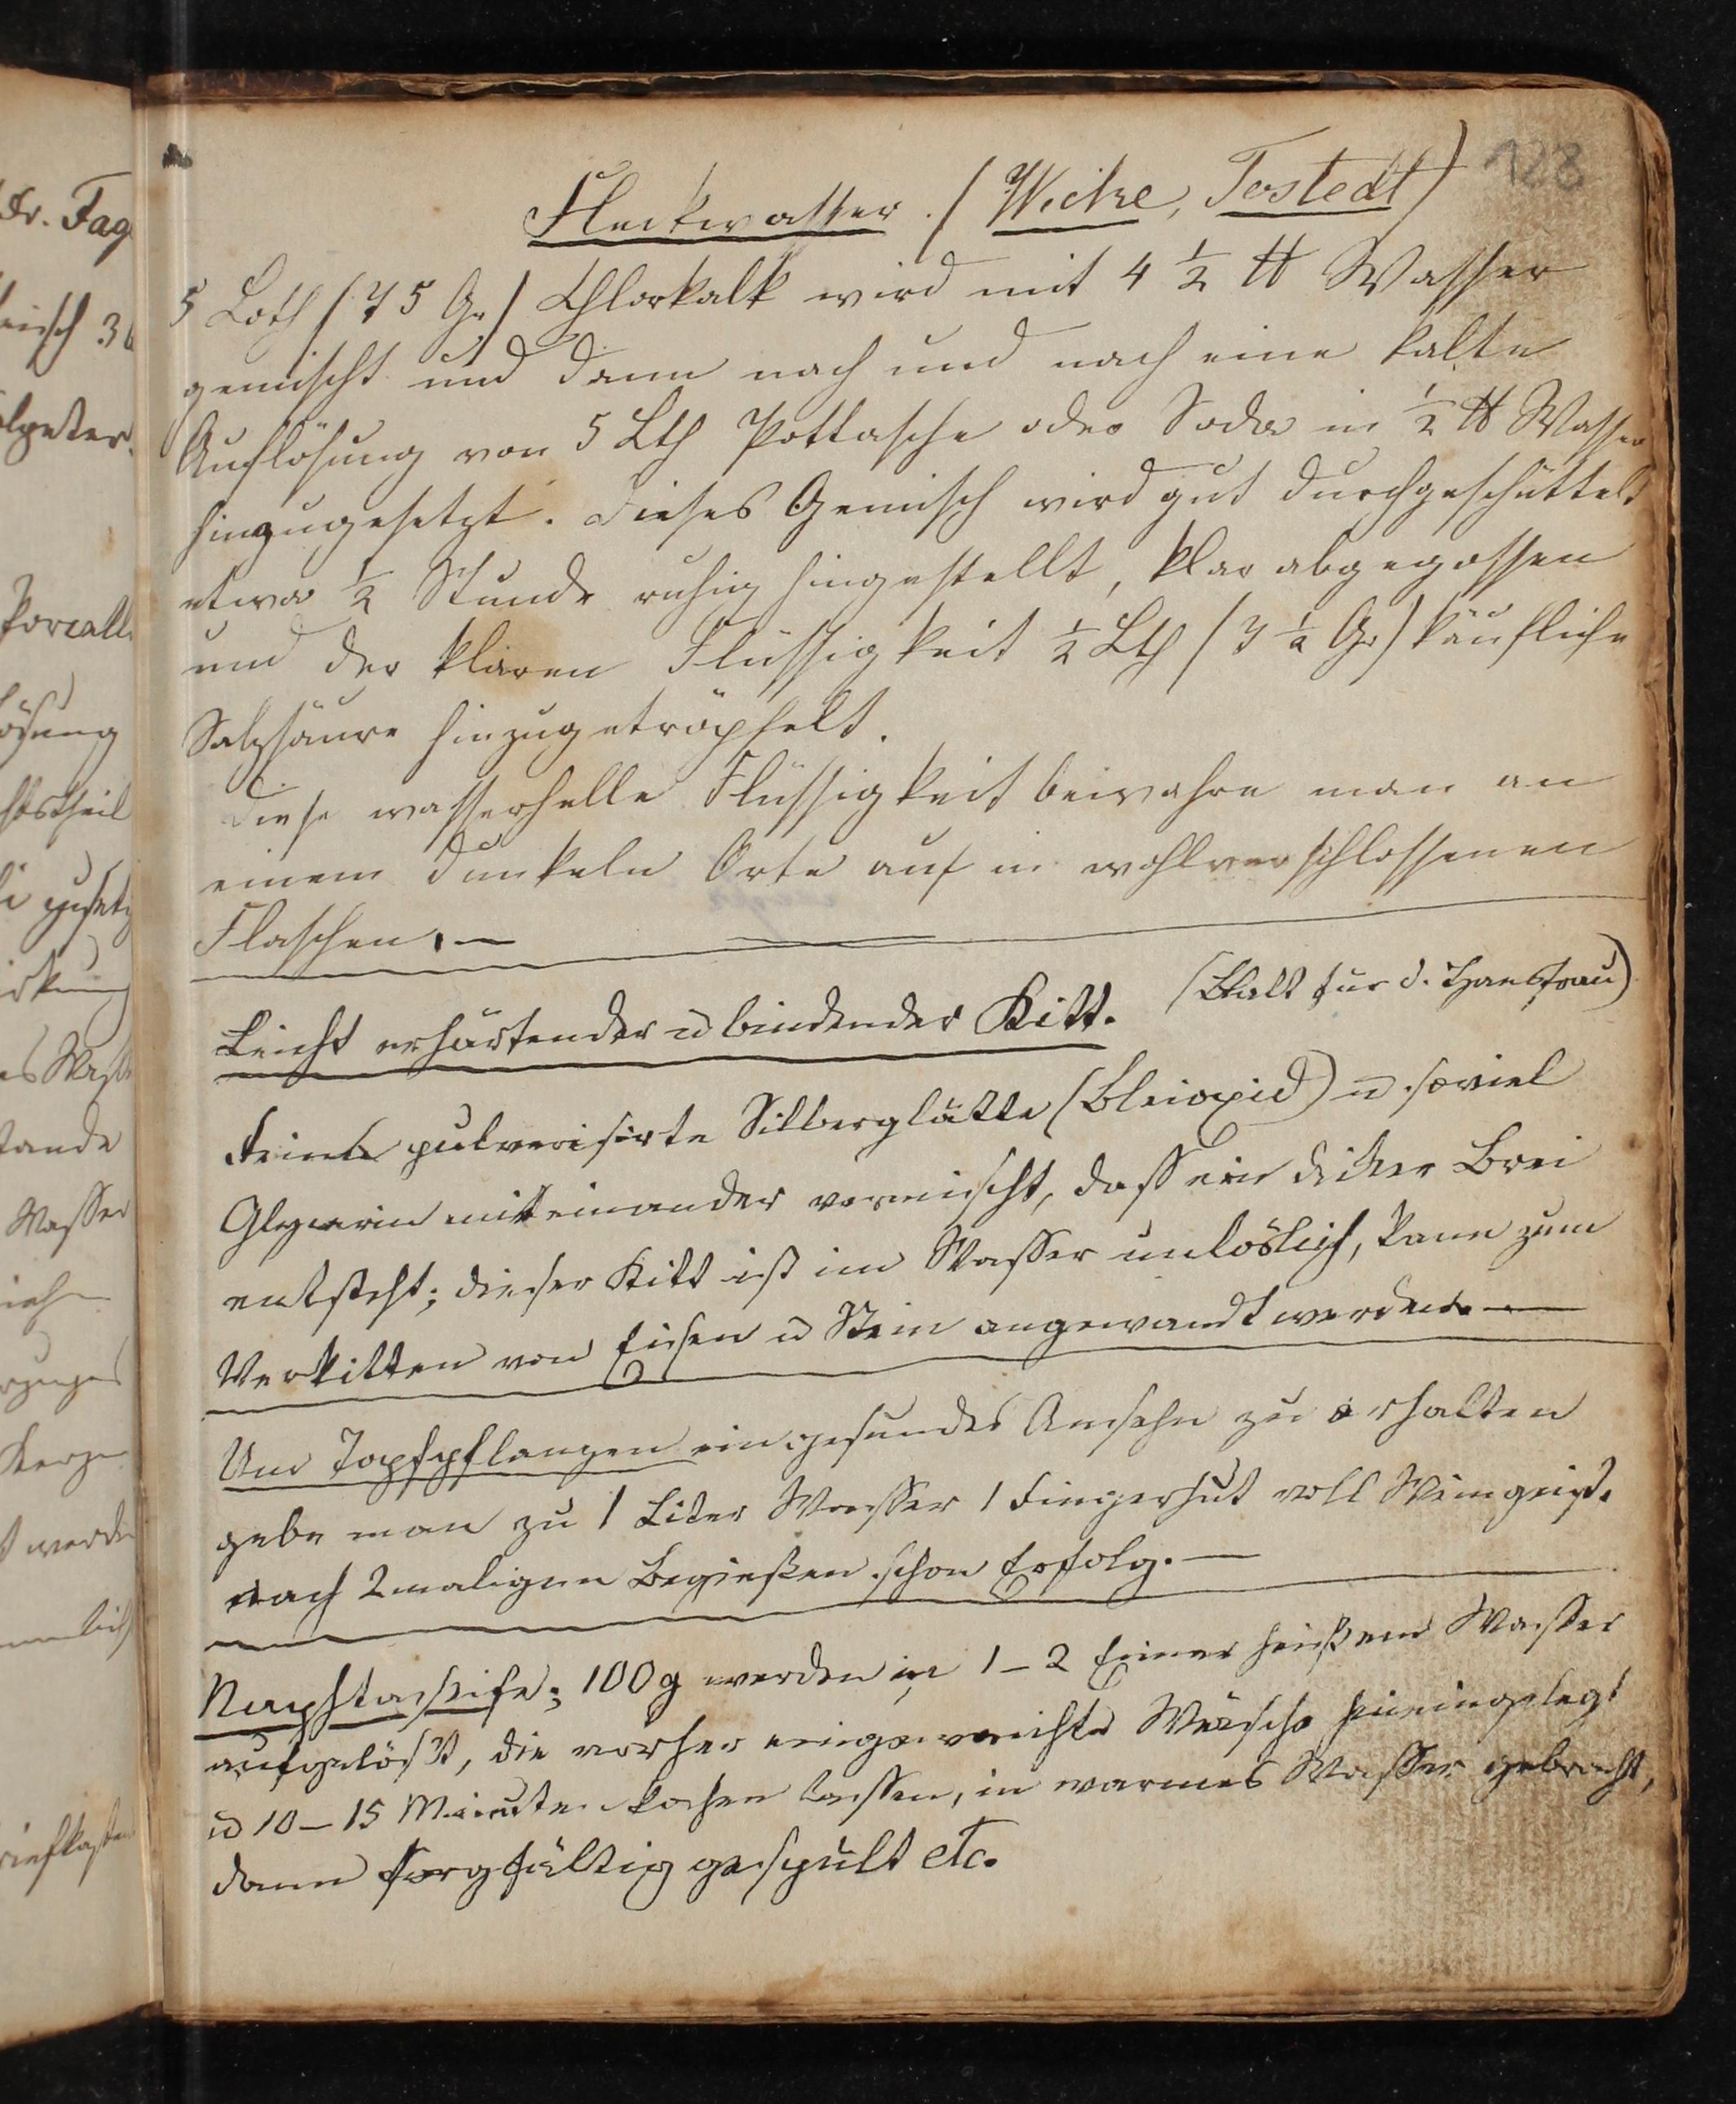 128
Fleckwasser. (Wicke, Tostedt)
5 Loth (75 Gr) Chlorkalk wird mit 4 ½ ℔ Wasser
gemischt und dann nach und nach eine kalte
Auflösung von 5 Lth Pottasche oder Soda in ½ ℔ Wasser
hinzugesetzt. Dieses Gemisch wird gut durchgeschüttelt
etwa ½ Stunde ruhig hingestellt, klar abgegossen
und der klaren Flüssigkeit ½ Lth (7 ½ Gr) käufliche
Salzsäure hinzugetröpfelt.
Diese wasserhelle Flüssigkeit bewahre man an
einem dunkeln Orte auf in wohlverschlossenen
Flaschen. —
Leicht erhärtender u bindender Kitt. (Blatt für d. Hausfrau)
Feine pulverisirte Silberglätte (Bleioxid) u. soviel
Glycerin miteinander vermischt, daß ein dicker Brei
entsteht; dieser Kitt ist im Wasser unlöslich, kann zum
Verkitten von Eisen u Stein angewandt werden. —
Um Topfpflanzen ein gesundes Ansehn zu erhalten
gebe man zu 1 Liter Wasser 1 Fingerhut voll Weingeist.
Nach 2maligem Begießen schon Erfolg. —
Naphtaseife; 100 g werden in 1–2 Eimer heißem Wasser
aufgelöst, die vorher eingeweichte Wäsche hineingelegt
u 10–15 Minuten kochen lassen, in warmes Wasser gebracht,
dann sorgfältig gespült etc.